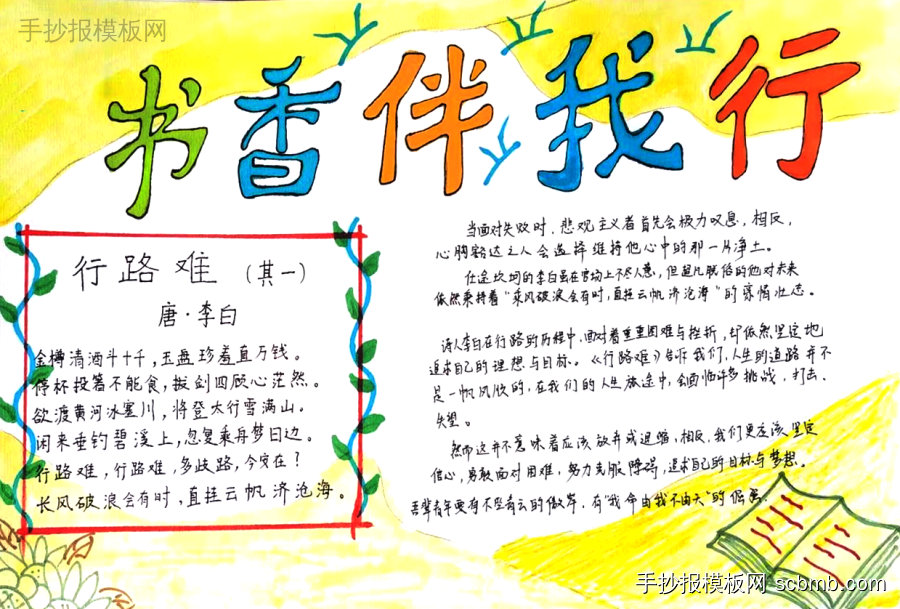 手抄报模板网
书香伴我行
行路难（其一）
唐·李白
金樽清酒斗十千，玉盘珍羞直万钱。
停杯投箸不能食，拔剑四顾心茫然。
欲渡黄河冰塞川，将登太行雪满山。
闲来垂钓碧溪上，忽复乘舟梦日边。
行路难，行路难，多歧路，今安在？
长风破浪会有时，直挂云帆济沧海。
当面对失败时，悲观主义者首先会极力叹息，相反，
心胸豁达之人会选择维持他心中的那一片净土。
仕途坎坷的李白虽在官场上不尽人意，但超凡脱俗的他对未来
依然秉持着“乘风破浪会有时，直挂云帆济沧海”的豪情壮志。
诗人李白在行路的历程中，面对着重重困难与挫折，却依然坚定地
追求自己的理想与目标。《行路难》告诉我们，人生的道路并不
是一帆风顺的，在我们的人生旅途中，会面临许多挑战、打击、
失望。
然而这并不意味着应该放弃或退缩，相反，我们更应该坚定
信心，勇敢面对困难，努力克服障碍，追求自己的目标与梦想。
吾辈青年要有不坠青云的傲岸，有“我命由我不由天”的倔强。
手抄报模板网 scbmb.com